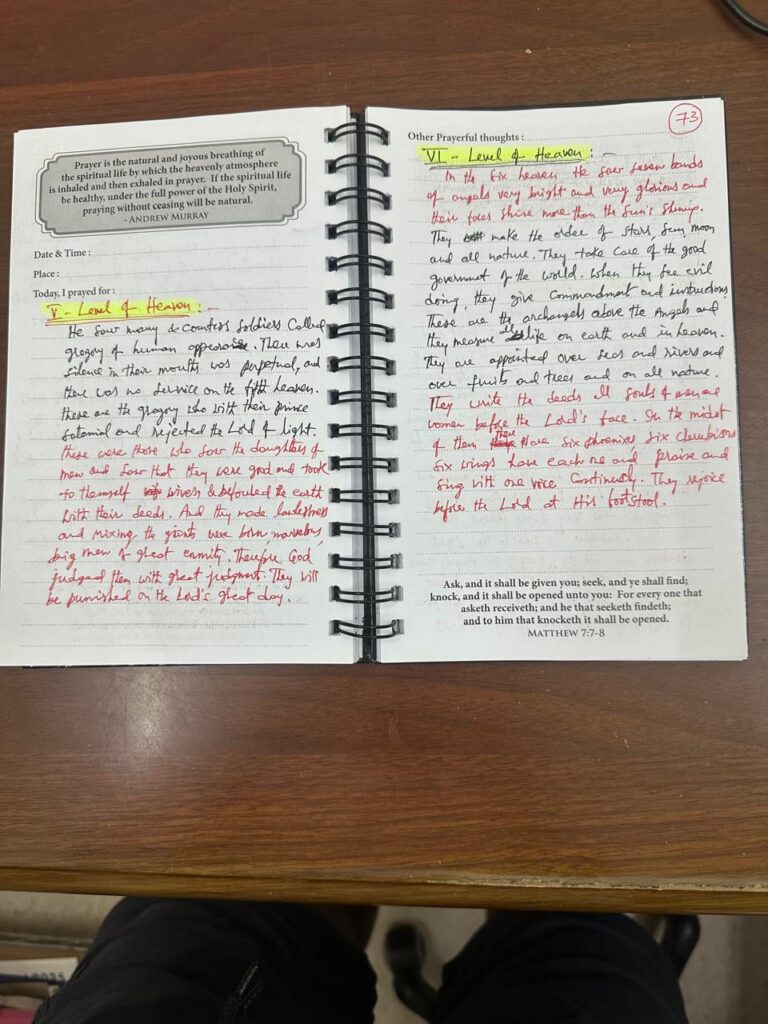 Prayer is the natural and joyous breathing of
the spiritual life by which the heavenly atmosphere
is inhaled and then exhaled in prayer. If the spiritual life
be healthy, under the full power of the Holy Spirit,
praying without ceasing will be natural.
- ANDREW MURRAY
Date & Time :
Place :
Today, I prayed for :
V - Level of Heaven :-
He saw many & countless soldiers called
gregory of human appearance. There was
silence in their mouths was perpetual, and
there was no service on the fifth heaven.
these are the gregory who with their prince
Satanial and rejected the Lord of light.
these were those who saw the daughters of
men and saw that they were good and took
to themself wives & befouled the earth
with their deeds. And they made
and mixing, the giants were born, marvelous,
big men of great enmity. Therefore God
judged them with great judgment. They will
be punished on the Lord's great day.
73
Other Prayerful thoughts :
VI - Level of Heaven : -
In the Six heaven He saw seven bands
of angels very bright and very glorious and
their faces shine more than the Sun's
They make the order of stars, Sun, moon
and all nature. They take care of the good
government of the world. When they see evil
doing, they give Commandment and instructions
These are the archangels above the Angels and
they measure all life on earth and in heaven.
They are appointed over seas and rivers and
over fruits and trees and on all nature.
They write the deeds all souls of men and
women before the Lord's face. In the midst
of them there are six phoenixes six
six wings have each one and praise and
Sing with one voice. Continually. They rejoice
before the Lord at His footstool.
Ask, and it shall be given you; seek, and ye shall find;
knock, and it shall be opened unto you: For every one that
asketh receiveth; and he that seeketh findeth;
and to him that knocketh it shall be opened.
MATTHEW 7:7-8